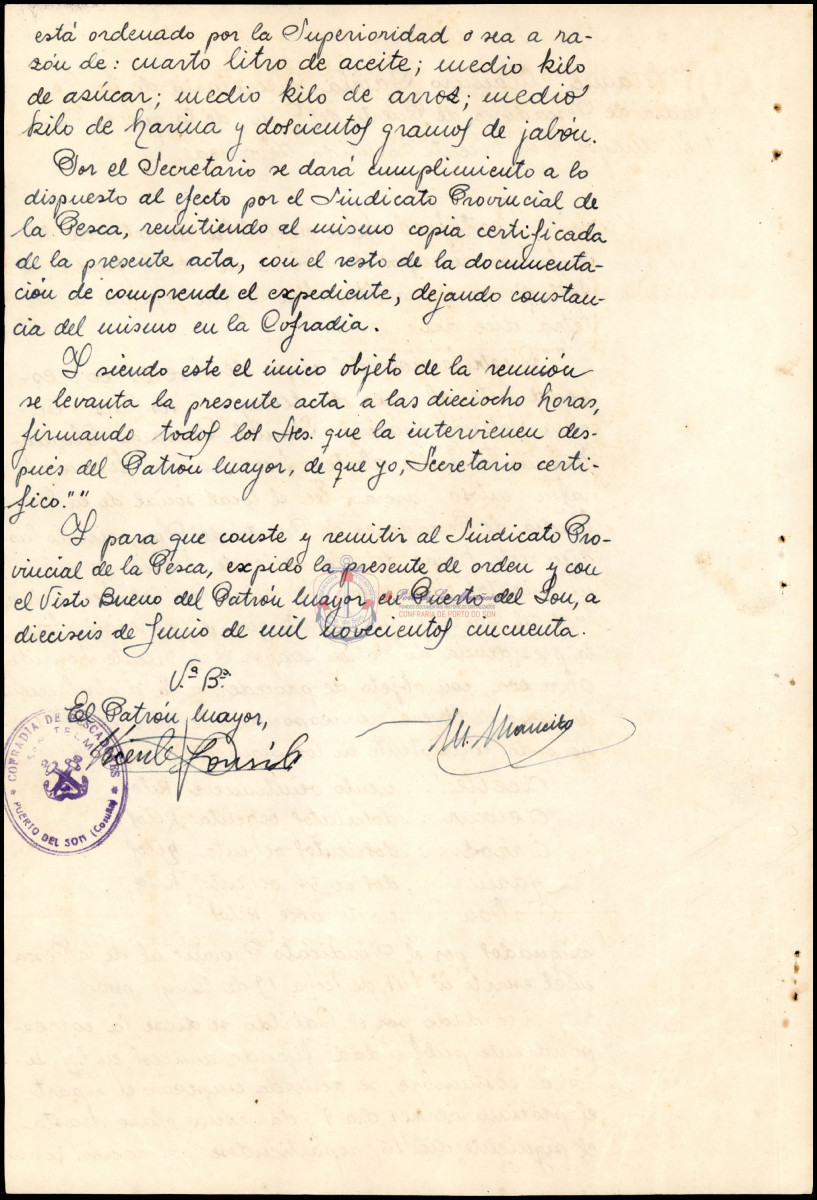 está ordenado por la Superioridad o sea a ra-
zón de: cuarto litro de aceite; medio kilo
de azúcar; medio kilo de arroz; medio
kilo de harina y doscientos gramos de jabón.
Por el Secretario se dará cumplimiento a lo
dispuesto al efecto por el Sindicato Provincial de
la Pesca, remitiendo al mismo copia certificada
de la presente acta, con el resto de la documenta-
ción de comprende el expediente, dejando constan-
cia del mismo en la Cofradia.
Y siendo este el único objeto de la reunión
se levanta la presente acta a las dieciocho horas,
firmando todos los Sres. que la intervienen des-
pués del Patrón mayor, de que yo, Secretario certi-
fico.""
Y para que conste y remitir al Sindicato Pro-
vincial de la Pesca, expido la presente de orden y con
el Visto Bueno del Patrón mayor en Puerto del Son, a
dieciseis de Junio de mil novecientos cincuenta.
CONFRARIA DE PORTO DO SON
V.º B.º
El Patrón mayor,
Vicente
COFRADIA DE PESCADORES
PUERTO DEL SON (Coruña)